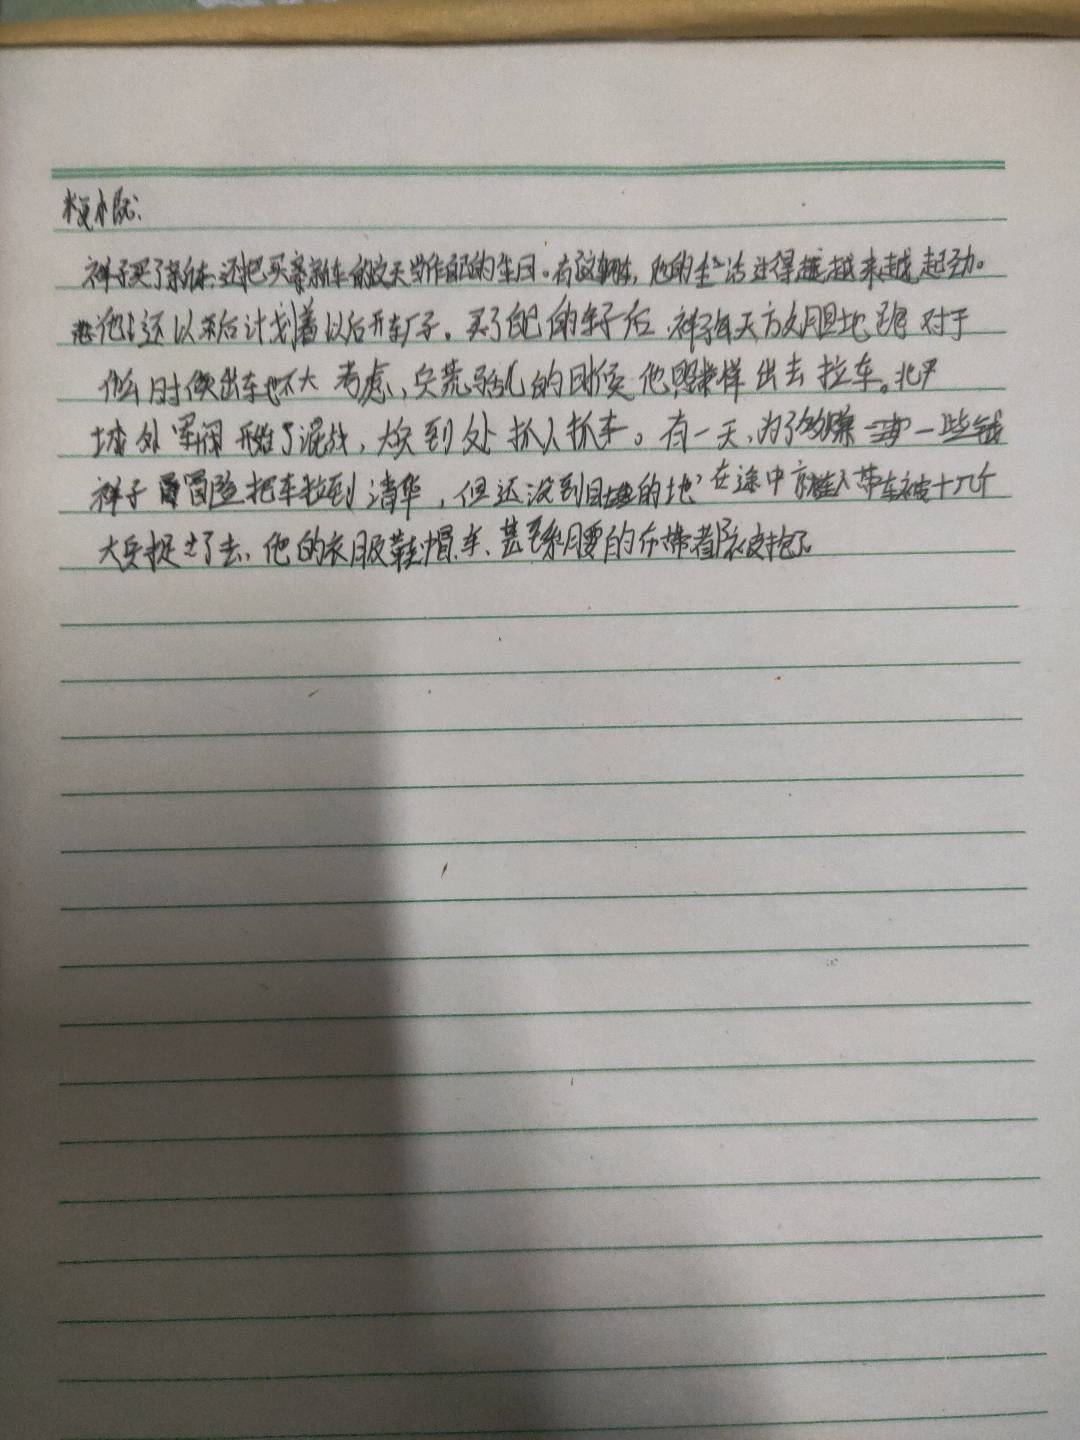 梗概:
祥子买了新车,还把买新车的这天当作自己的生日。有了这辆车,他的生活过得越来越起劲。
他还计划着以后开车厂子。买了自己的车子后,祥子每天 地 对于
什么时候出车也不大考虑,兵荒马乱的时候他照样出去拉车。北平
城外军阀开始了混战,大兵到处抓人抓车。有一天,为了多赚一些钱
祥子冒险把车拉到清华,但还没到目的地,在途中就连人带车被十几个
大兵捉了去,他的衣服鞋帽、车、甚至系腰的布带都被抢了